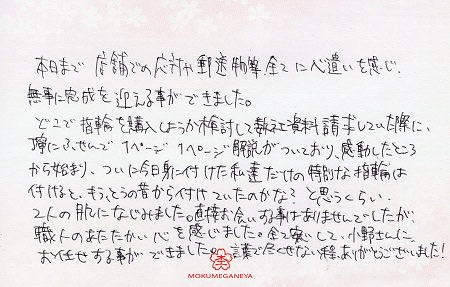 本日まで店舗での応対や郵送物等、全てに心遣いを感じ、
無事に完成を迎える事ができました。
どこで指輪を購入しようか検討して数社資料請求していた際に、
隣にふせんで1ページ1ページ解説がついており、感動したところ
から始まり、ついに今日身に付けた私達だけの特別な指輪は
付けると、もう、とうの昔から付けていたのかな?と思うくらい、
2人の肌になじみました。直接お会いする事はありませんでしたが、
職人のあたたかい心を感じました。全て安心して、小野さんに、
お任せする事ができました。言葉で尽くせない程、ありがとうございました!
MOKUMEGANEYA